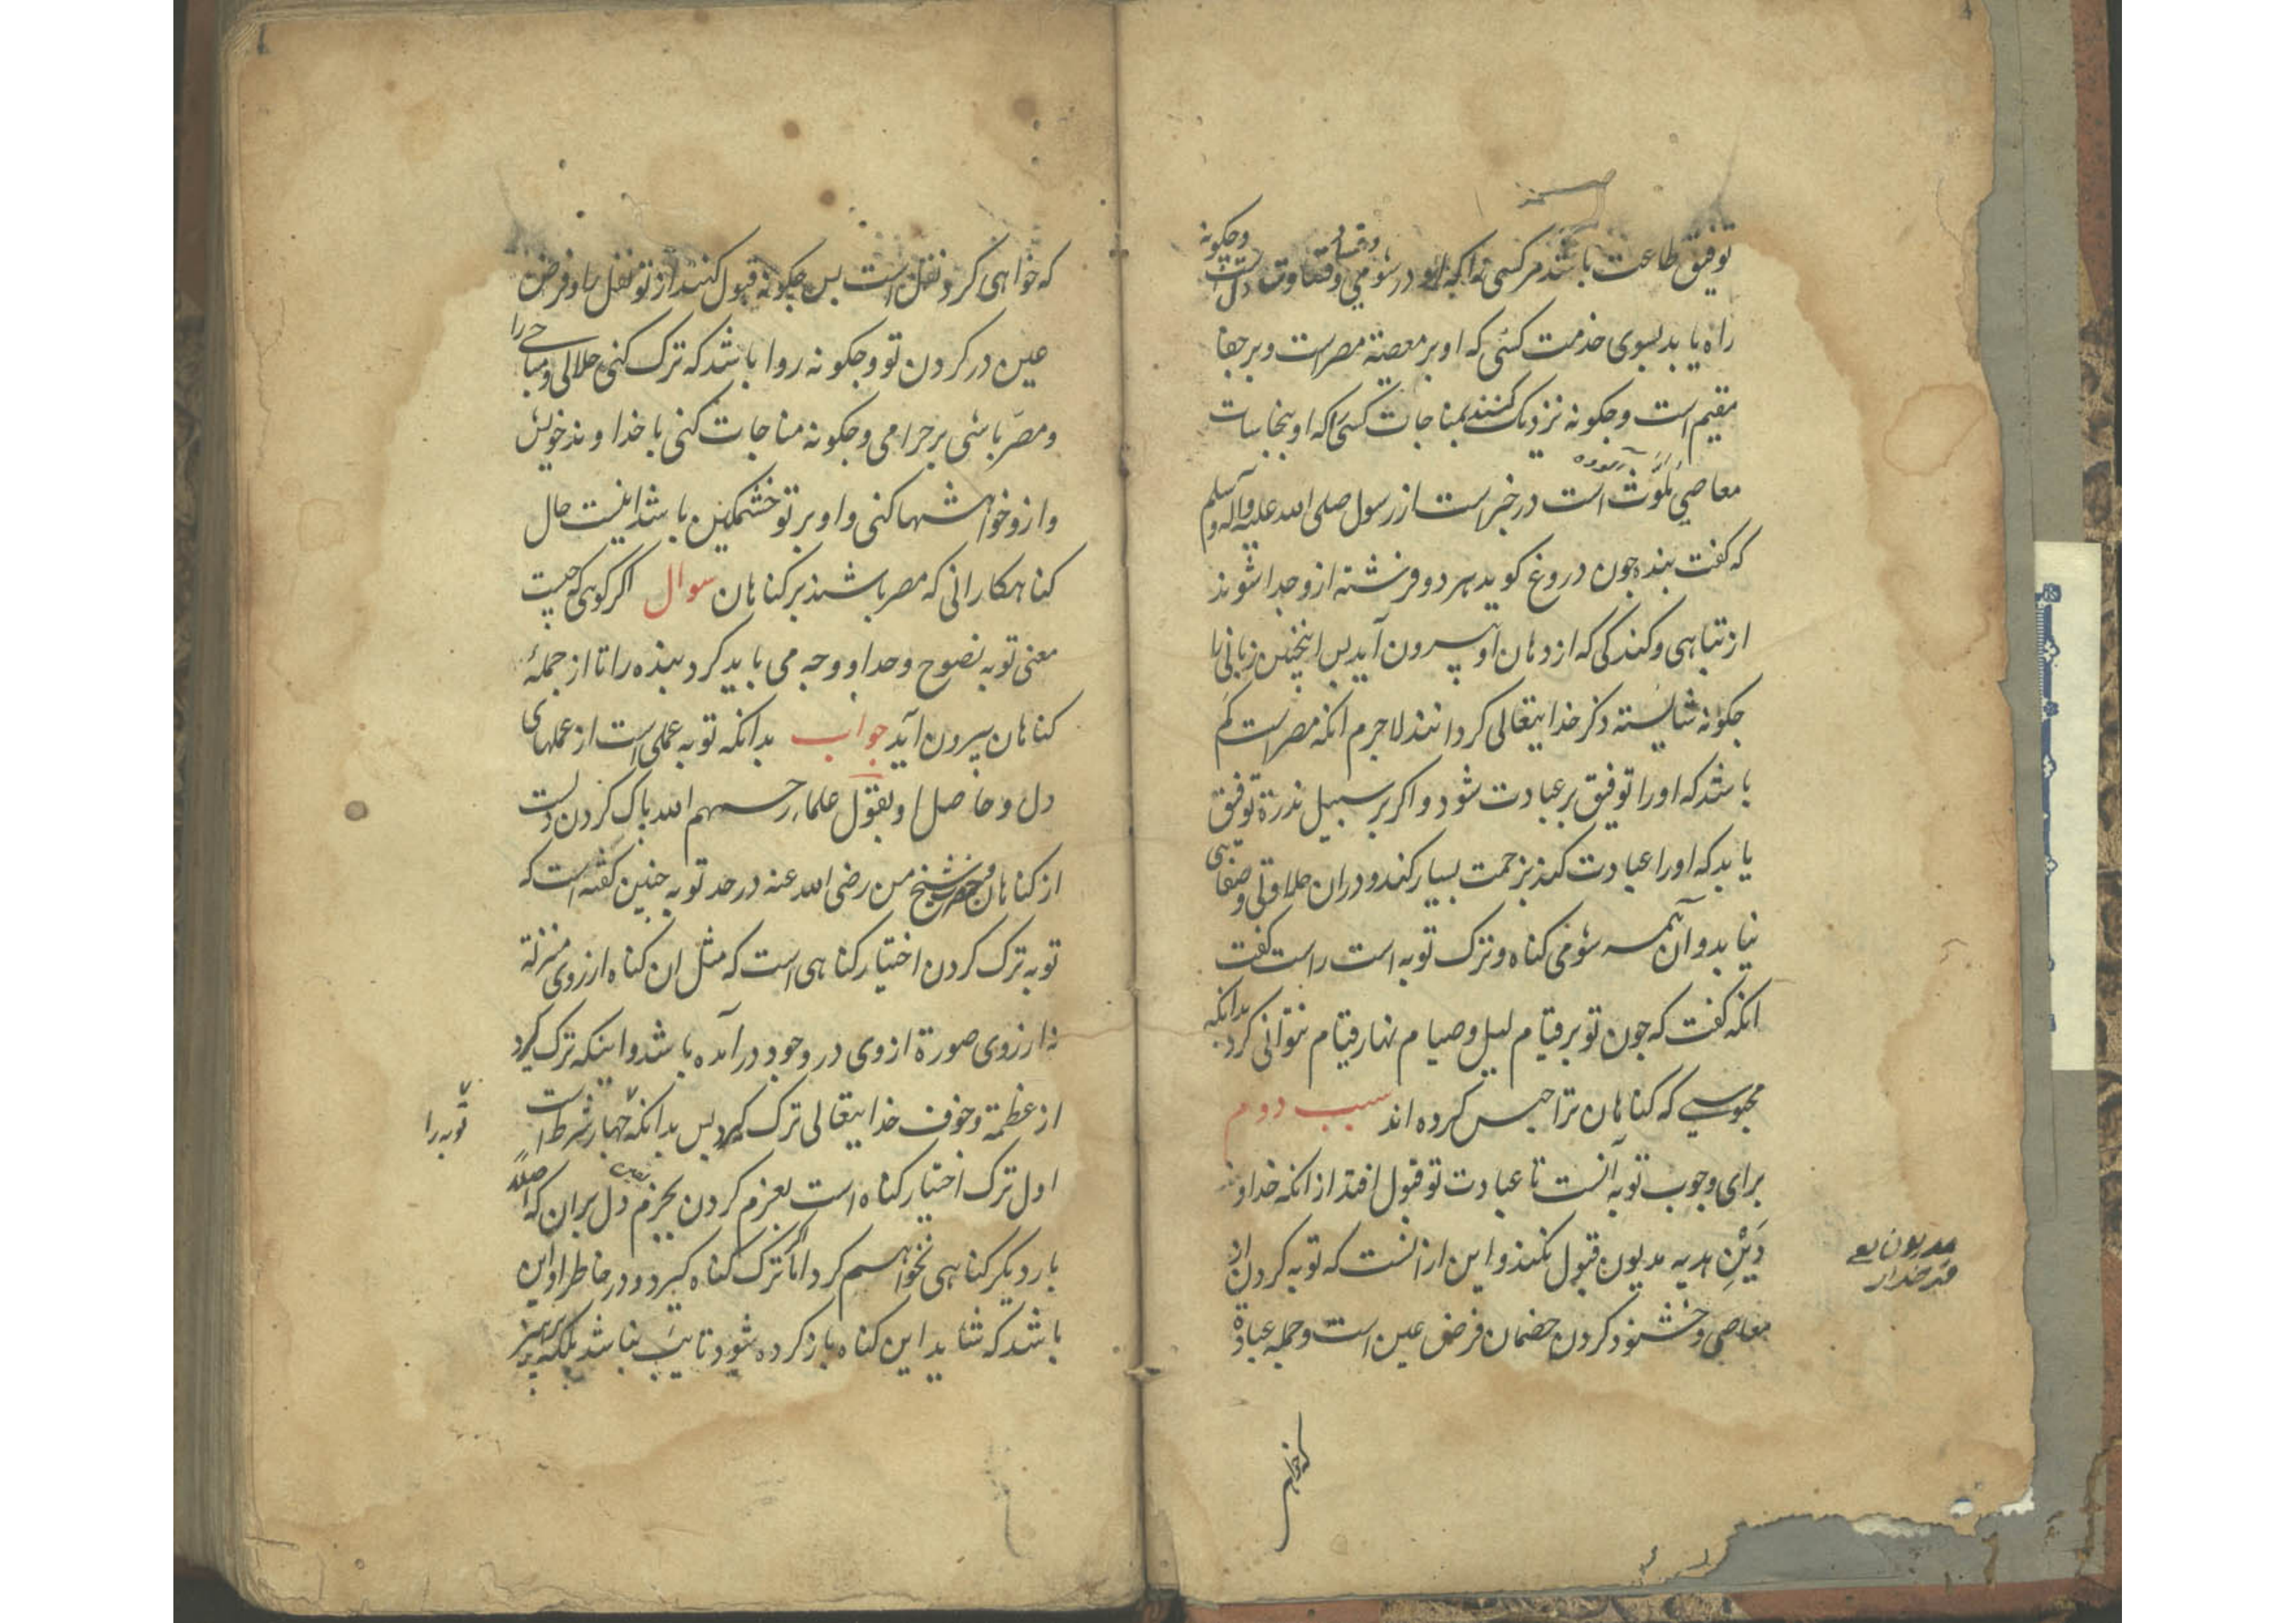 توفیق طاعت باشد مر کسی را که او در شومی و قساوت دلست و چکونه
راه یابد بسوی خدمت کسی که او بر معصیة مصرست و بر جفا
مقیم است و چکونه نزدیک کنند بمناجات کسی را که او بنجاسات
معاصی ملوّث است در خبرست از رسول صلی الله علیه وآله وسلم
که کفت بنده چون دروغ کوید هر دو فرشته ازو جدا شوند
از تباهی و کندکی که از دهان او بیرون آید بس اینچنین زبانی را
چکونه شایسته ذکر خدایتعالی کردانند لاجرم انکه مصرست کم
باشد که او را توفیق بر عبادت شود و اکر بر سبیل ندرة توفیق
یابد که او را عبادت کند بزحمت بسیار کند و دران حلاوتی و صفایی
نیابد و آن همه شومی کناه و ترک توبه است راست کفت
انکه کفت که چون تو بر قیام لیل و صیام نهار قیام نتوانی کرد بدانکه
محبوسی که کناهان ترا حبس کرده اند سبب دوم
برای وجوب توبه آنست تا عبادت تو قبول افتد از انکه خداوند
دَیْنِ هدیه مدیون قبول نکند و این ازانست که توبه کردن از
معاصی و خشنود کردن خصمان فرض عین است و جمله عبادة
مدیون یعنی قرضدار
که خواهی
که خواهی کرد نفل است بس چکونه قبول کنند از تو نفل را و فرض
عین در کردن تو و چکونه روا باشد که ترک کنی حلالی و مباحی را
و مصرّ باشی بر حرامی و چکونه مناجات کنی با خداوند خویش
و ازو خواهشها کنی و او بر تو خشمکین باشد اینست حال
کناهکارانی که مصر باشند بر کناهان سوال اکر کوهی که چیست
معنی توبه نصوح و حد او و چه می باید کرد بنده را تا از جملهٔ
کناهان بیرون آید جواب بدانکه توبه عملی است از عملهای
دل و حاصل او بقول علماء رحمهم الله باک کردن دلست
از کناهان و حضرت شیخ من رضی الله عنه در حد توبه چنین کفته است که
توبه ترک کردن اختیار کناهی است که مثل ان کناه از روی منزلة
نه از روی صورة از وی در وجود در آمده باشد و اینکه ترک کیرد
از عظمة و خوف خدایتعالی ترک کیرد بس بدانکه چهار شرط است
توبه را
اول ترک اختیار کناه است بعزم کردن بجزم دل بران که اصلاً
بار دیکر کناهی نخواهم کرد اما اکر ترک کناه کیرد و در خاطر او این
باشد که شاید این کناه باز کرده شود تایب نباشد بلکه پرهیز